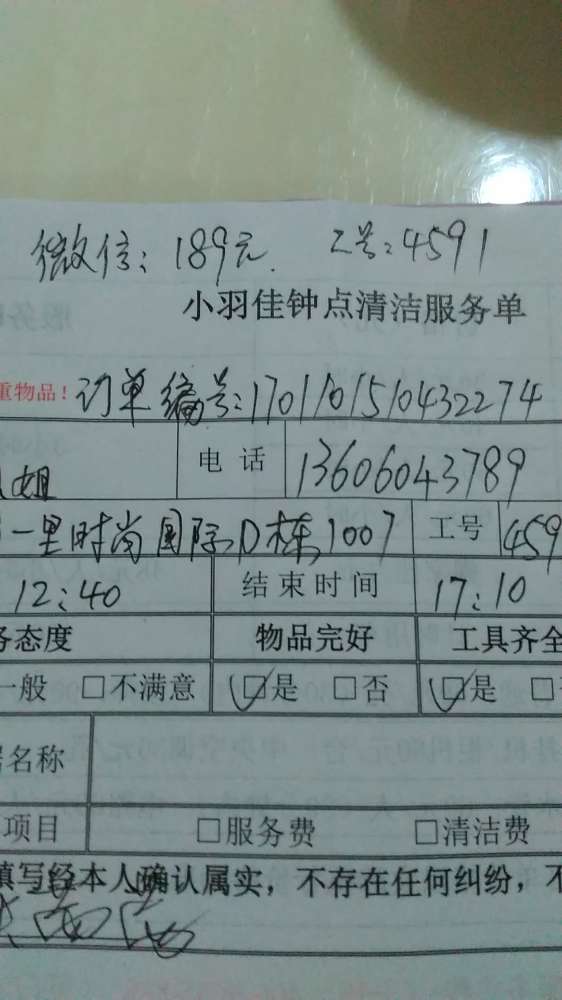 微信：189元 工号：4591
小羽佳钟点清洁服务单
重物品！订单编号：170110151043２274
姐 电话 13606043789
一里时尚国际D栋1007 工号 459
12:40 结束时间 17:10
务态度 物品完好 工具齐全
一般 □不满意 ☑是 □否 ☑是 □
名称
项目 □服务费 □清洁费
填写经本人确认属实，不存在任何纠纷，不